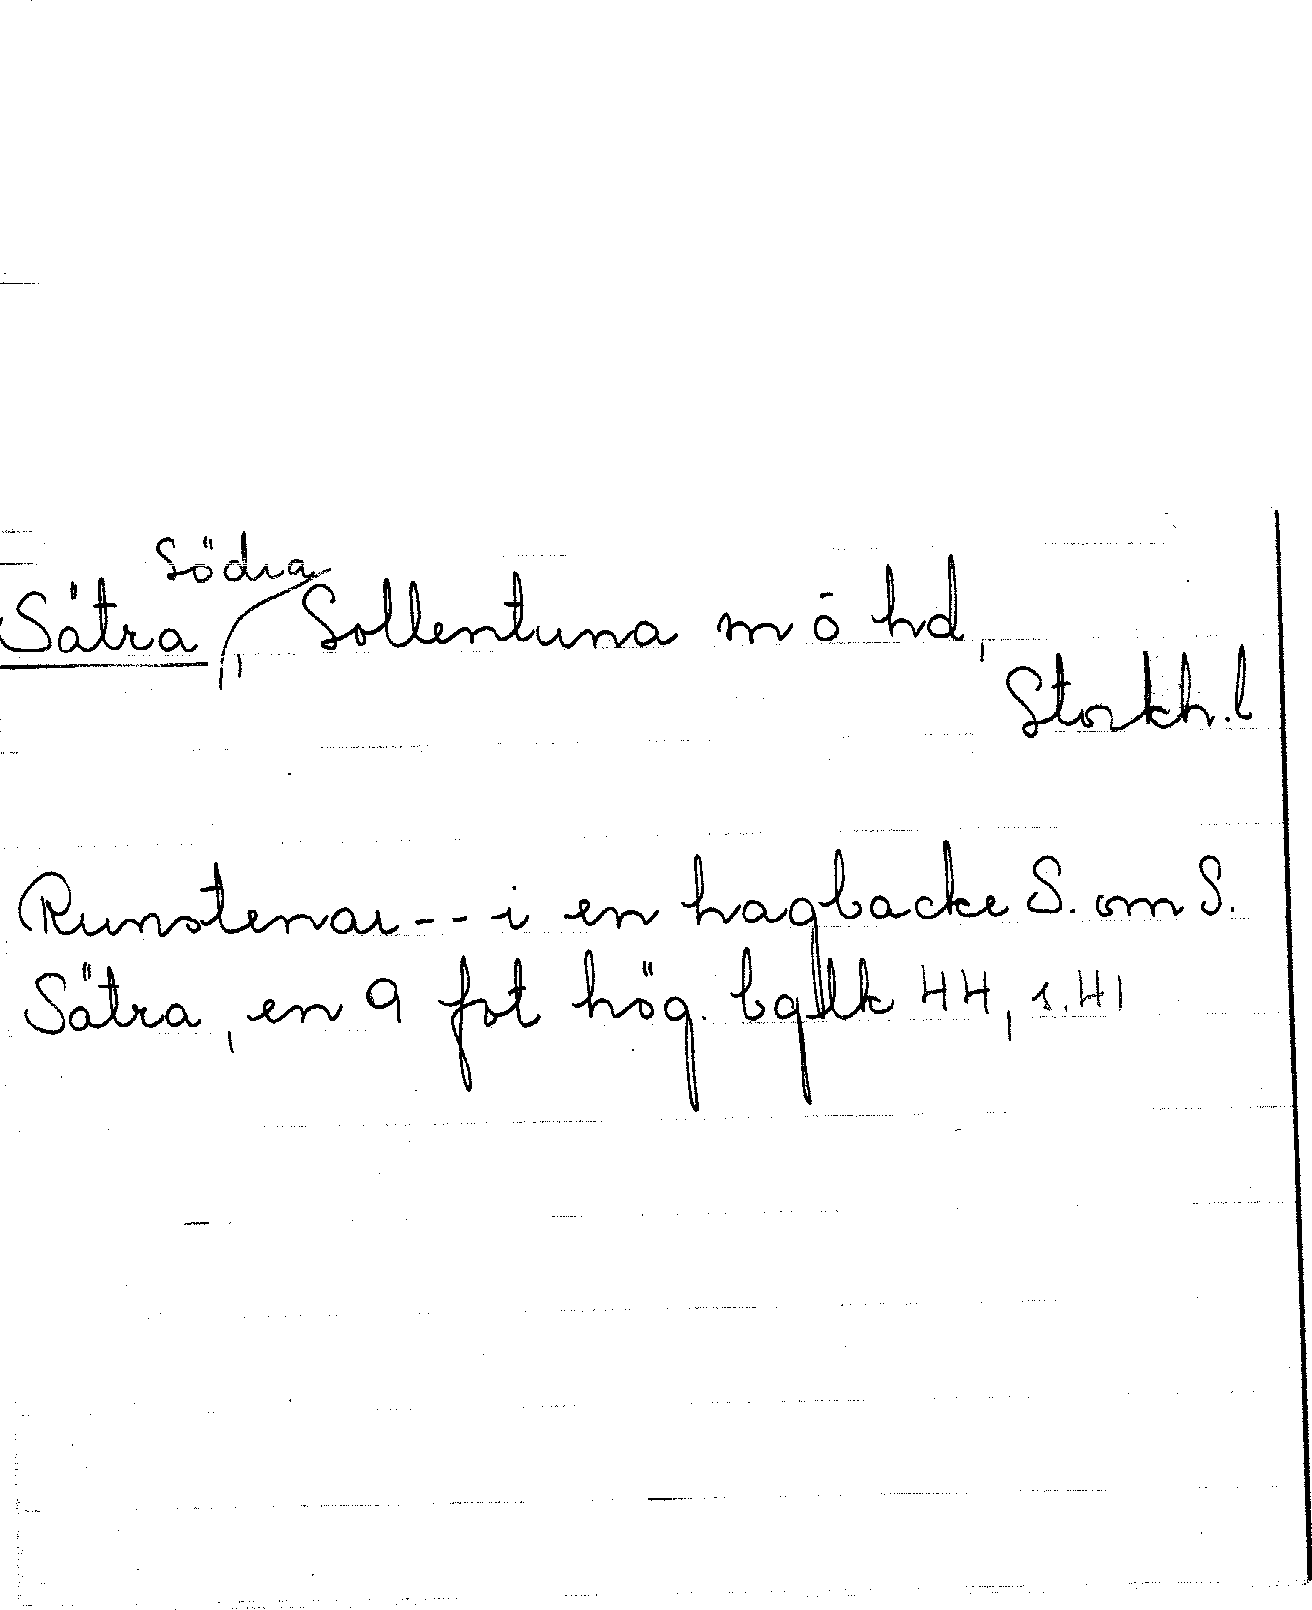 Södra
Sätra, Sollentuna sn o hd,
Stockh.l
Runstenar -- i en hagbacke S. om S.
Sätra, en 9 fot hög. bglk 44, s. 41